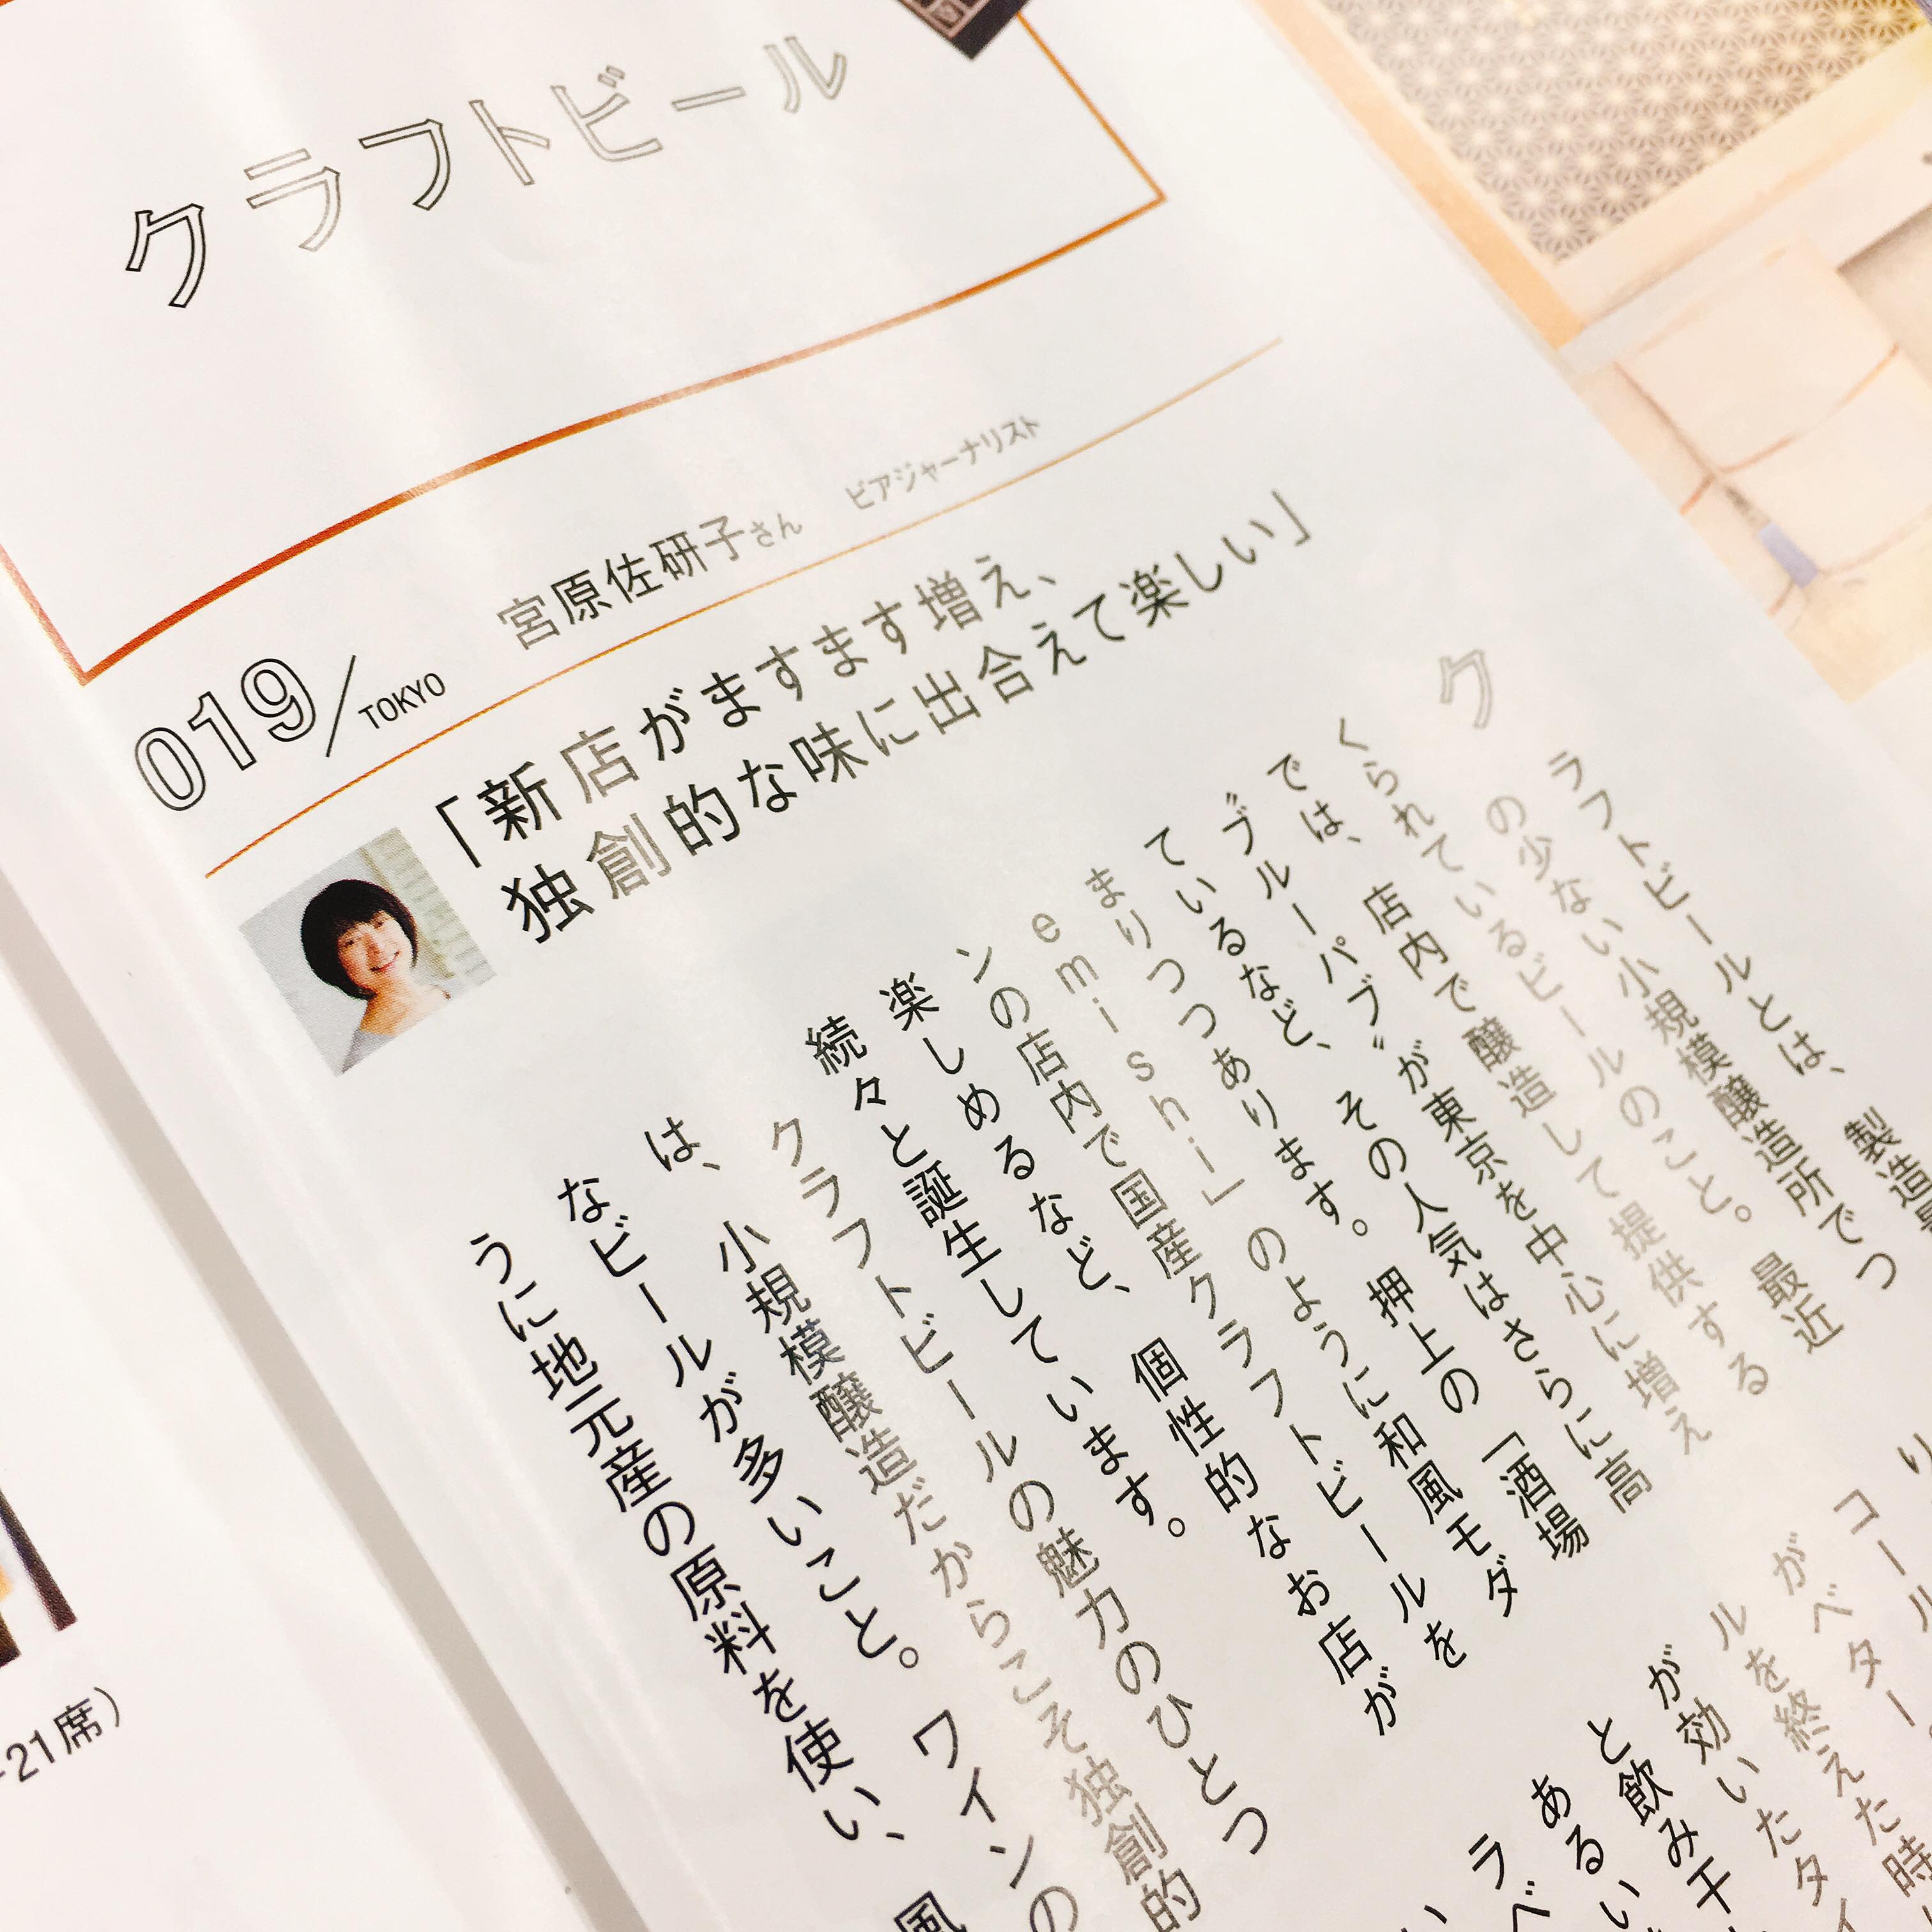 クラフトビール
宮原佐研子さん ビアジャーナリスト
019/TOKYO
「新店がますます増え、
独創的な味に出合えて楽しい」
クラフトビールとは、製造量
の少ない小規模醸造所でつ
くられているビールのこと。最近
では、店内で醸造して提供する
〝ブルーパブ〟が東京を中心に増え
ているなど、その人気はさらに高
まりつつあります。押上の「酒場
emishi」のように和風モダ
ンの店内で国産クラフトビールを
楽しめるなど、個性的なお店が
続々と誕生しています。
クラフトビールの魅力のひとつ
は、小規模醸造だからこそ独創的
なビールが多いこと。ワインの
うに地元産の原料を使い、風
り
コール
がベター。
ルを終えた時
が効いたタイ
と飲み干
あるい
ラベ
い
-21席)